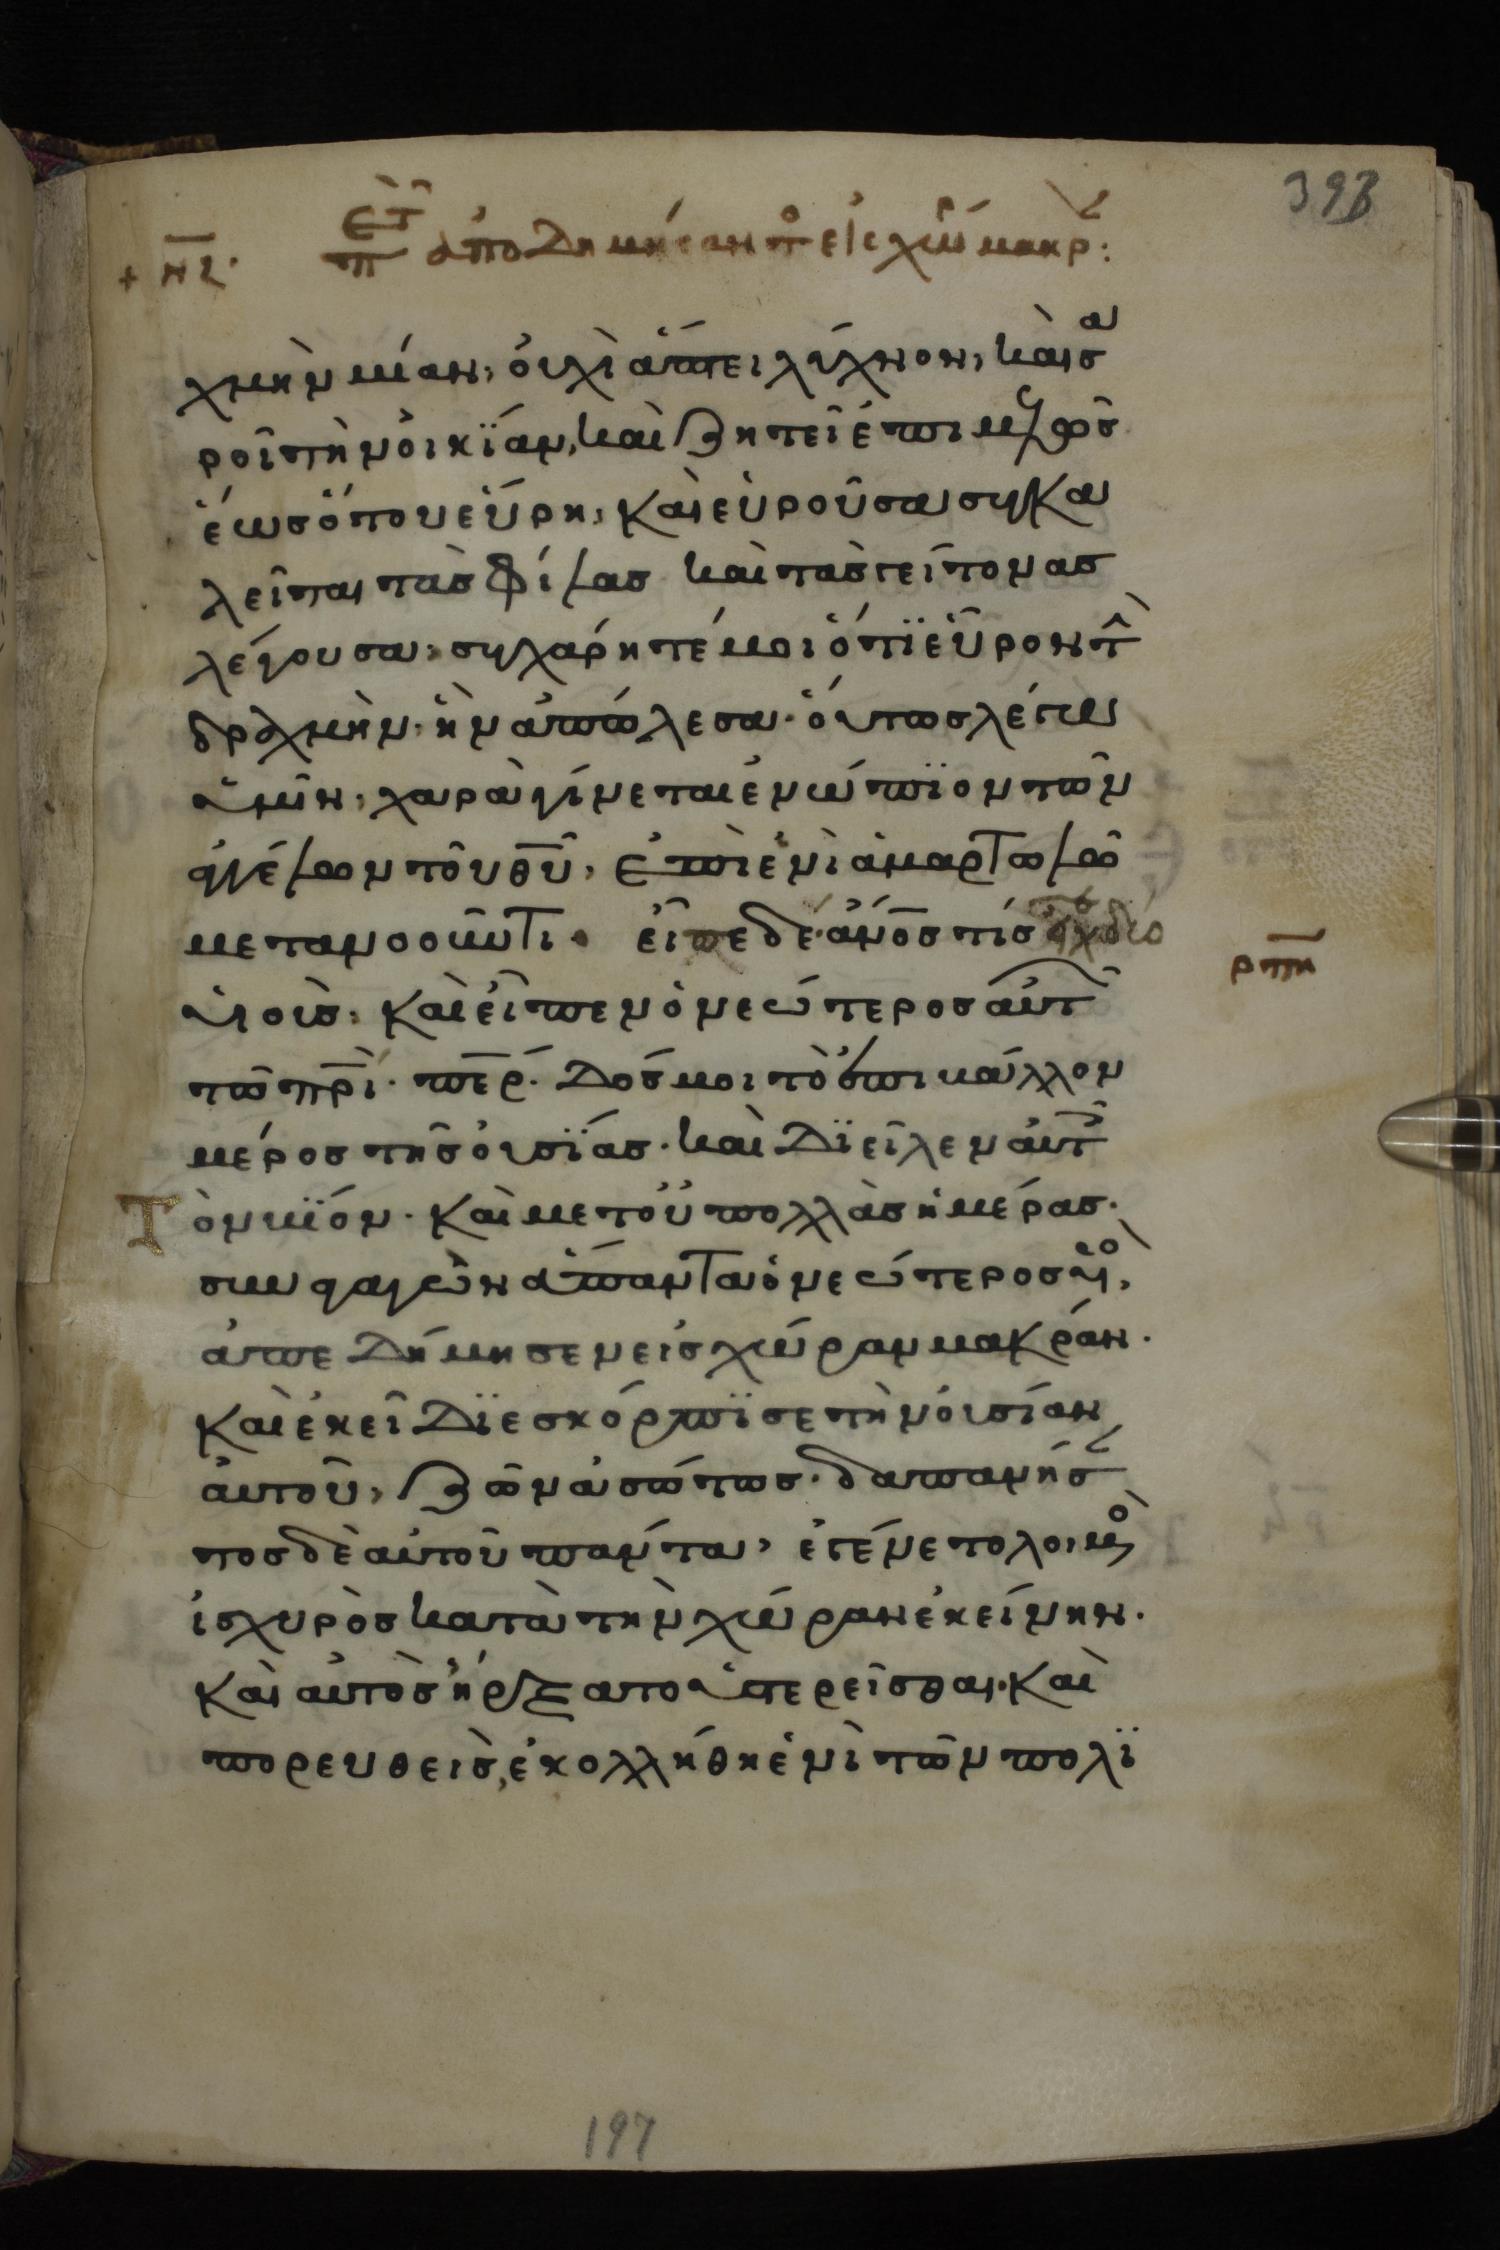 393
+ νζ· περὶ τ ἀποδημήσαντο εἰς χώρ μακρ:
χμὴν μίαν, οὐχὶ ἅπτει λύχνον, καὶ σα
ροῖ τὴν οἰκΐαν, καὶ ζητεῖ ἐπιμελῶς
ἕως ὅπου εὕρη, καὶ εὑροῦσα συγκα
λεῖται τὰς φίλας καὶ τὰς γείτονας
λέγουσα, συγχάρητέ μοι ὅτϊ εὗρον τ
δραχμὴν ἣν ἀπώλεσα· οὕτως λέγω
ὑμῖν, χαρὰ γίνεται ἐνώπϊον τῶν
ἀγγέλων τοῦ θυ, ἐπὶ ἑνὶ ἁμαρτωλῶ
μετανοοῦντι· εἶπε δὲ ἄνος τίς εἶχε δύο
υἱούς, καὶ εἶπεν ὁ νεώτερος αὐτ
τῶ πρι· περ· δός μοι τὸ ἐπιβάλλον
μέρος τῆς οὐσΐας· καὶ δϊεῖλεν αὐτ
τὸν βϊόν· καὶ μετ' οὐ πολλὰς ἡμέρας·
συναγαγὼν ἅπαντα ὁ νεώτερος υἱο,
ἀπεδήμησεν εἰς χώραν μακράν·
καὶ ἐκεῖ δϊεσκόρπϊσε τὴν οὐσίαν
αὐτοῦ, ζῶν ἀσώτως· δαπανήσ
τος δὲ αὐτοῦ πάντα, ἐγένετο λοιμὸ
ἰσχυρὸς κατὰ τὴν χώραν ἐκείνην·
καὶ αὐτὸς ἤρξατο ὑστερεῖσθαι· καὶ
πορευθεὶς, ἐκολλήθη ἑνὶ τῶν πολϊ
ρπη
197